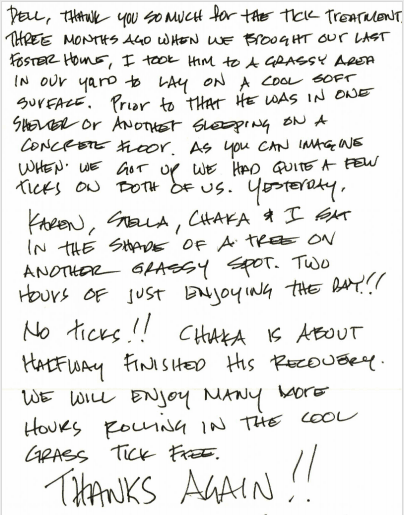 DELL, THANK YOU SO MUCH for THE TICK TREATMENT.
THREE MONTHS AGO WHEN WE BROUGHT OUR LAST
FOSTER HOME, I TOOK HIM TO A GRASSY AREA
IN OUR YARD TO LAY ON A COOL SOFT
SURFACE. PRIOR TO THAT HE WAS IN ONE
SHELTER OR ANOTHER SLEEPING ON A
CONCRETE FLOOR. AS YOU CAN IMAGINE
WHEN WE GOT UP WE HAD QUITE A FEW
TICKS ON BOTH OF US. YESTERDAY,
KAREN, STELLA, CHAKA & I SAT
IN THE SHADE OF A TREE ON
ANOTHER GRASSY SPOT. TWO
HOURS OF JUST ENJOYING THE DAY!!
NO TICKS!! CHAKA IS ABOUT
HALFWAY FINISHED HIS RECOVERY.
WE WILL ENJOY MANY MORE
HOURS ROLLING IN THE COOL
GRASS TICK FREE.
THANKS AGAIN!!